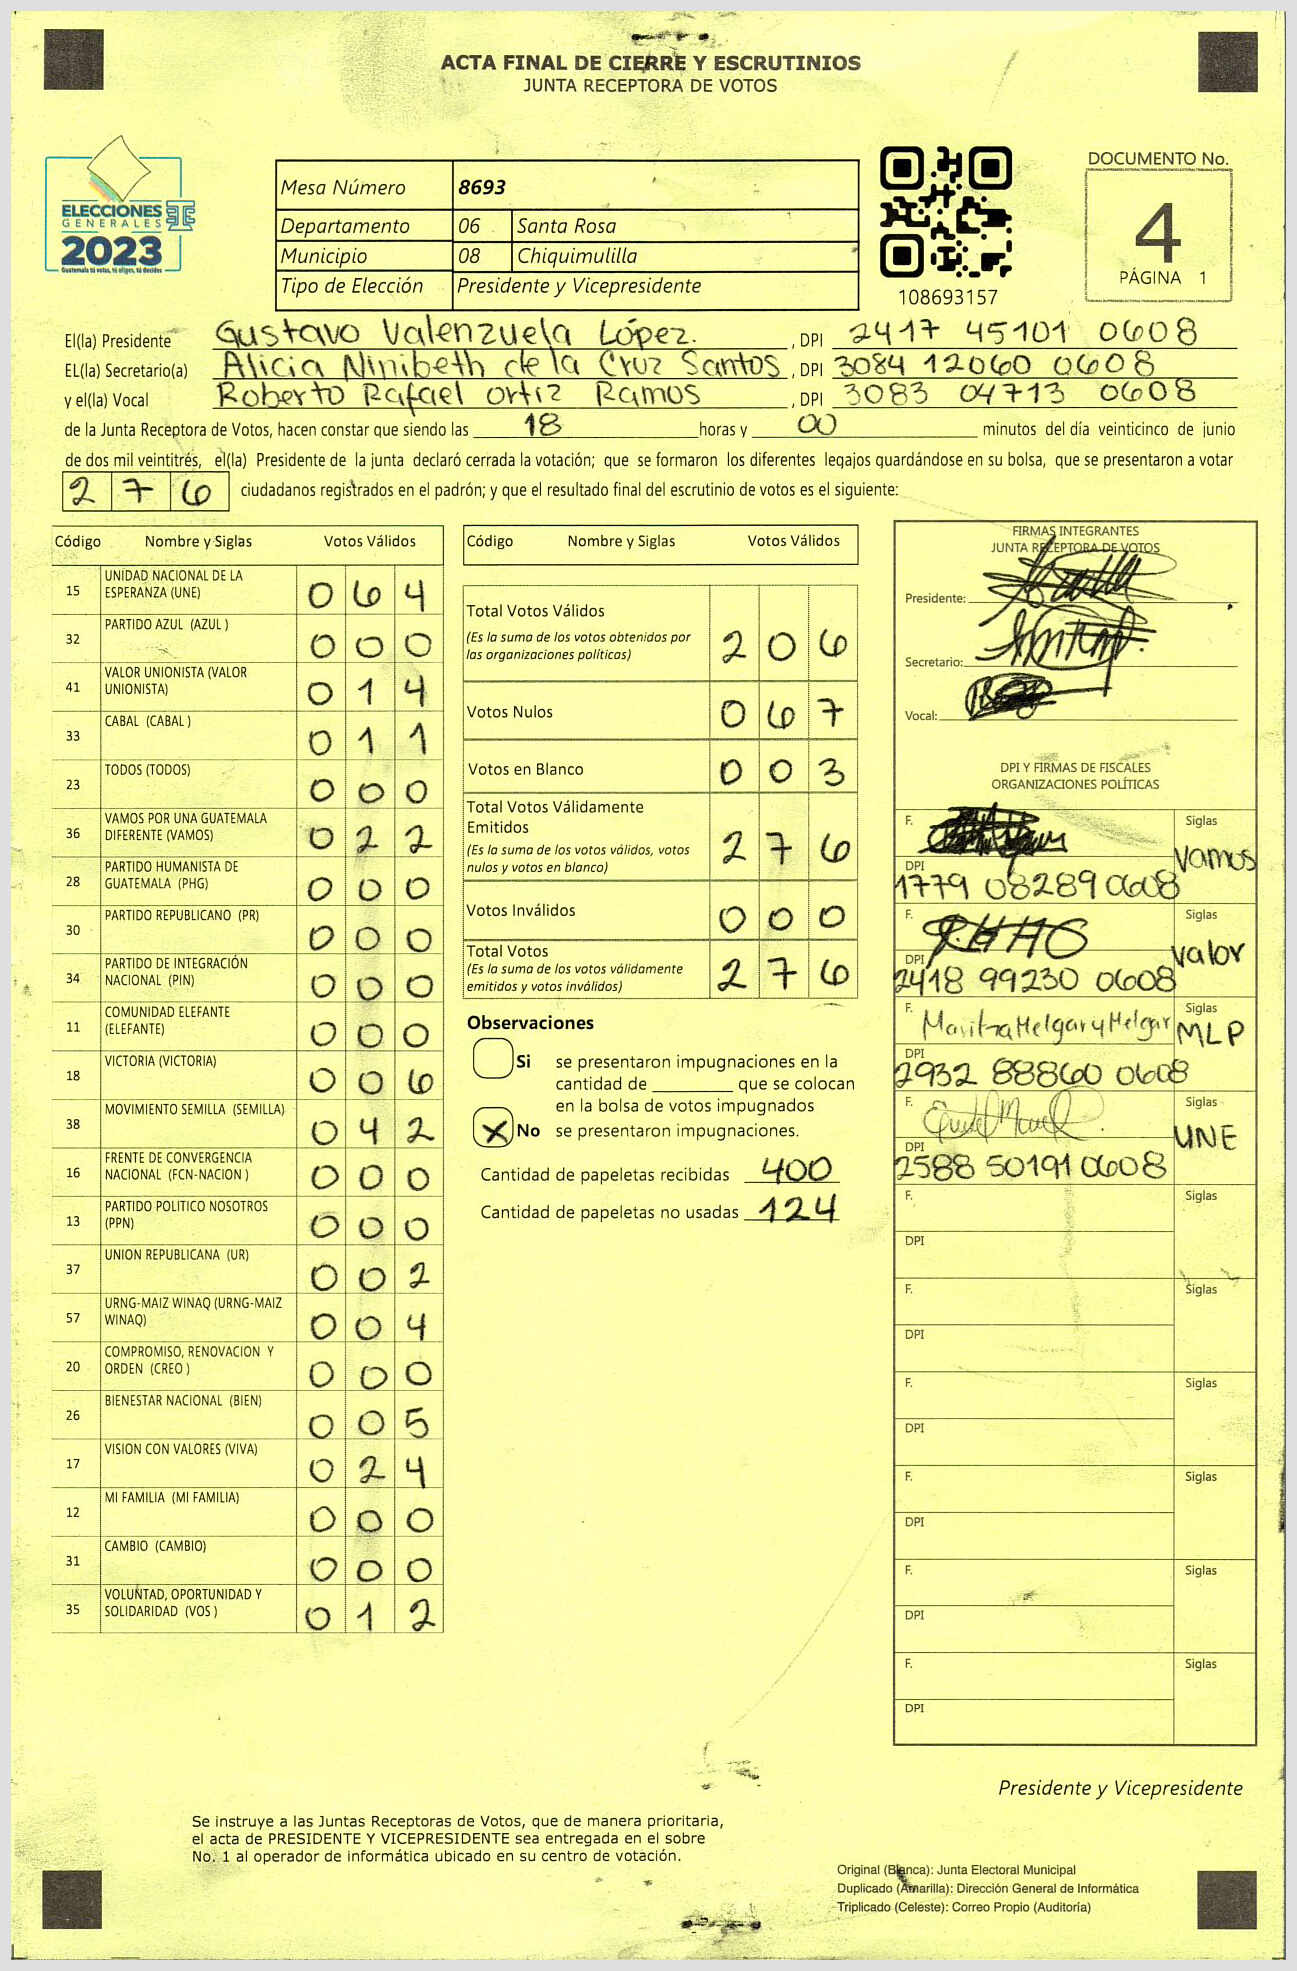 ACTA FINAL DE CIERRE Y ESCRUTINIOS
JUNTA RECEPTORA DE VOTOS
ELECCIONES
GENERALES
2023
Guatemala tú votas, tú eliges, tú decides
Mesa Número 8693
Departamento 06 Santa Rosa
Municipio 08 Chiquimulilla
Tipo de Elección Presidente y Vicepresidente
108693157
DOCUMENTO No.
4
PÁGINA 1
El(la) Presidente Gustavo Valenzuela López. , DPI 2417 45101 0608
EL(la) Secretario(a) Alicia Ninibeth de la Cruz Santos , DPI 3084 12060 0608
y el(la) Vocal Roberto Rafael Ortiz Ramos , DPI 3083 04713 0608
de la Junta Receptora de Votos, hacen constar que siendo las 18 horas y 00 minutos del día veinticinco de junio
de dos mil veintitrés, el(la) Presidente de la junta declaró cerrada la votación; que se formaron los diferentes legajos guardándose en su bolsa, que se presentaron a votar
276 ciudadanos registrados en el padrón; y que el resultado final del escrutinio de votos es el siguiente:
Código Nombre y Siglas Votos Válidos
15 UNIDAD NACIONAL DE LA ESPERANZA (UNE) 064
32 PARTIDO AZUL (AZUL ) 000
41 VALOR UNIONISTA (VALOR UNIONISTA) 014
33 CABAL (CABAL ) 011
23 TODOS (TODOS) 000
36 VAMOS POR UNA GUATEMALA DIFERENTE (VAMOS) 022
28 PARTIDO HUMANISTA DE GUATEMALA (PHG) 000
30 PARTIDO REPUBLICANO (PR) 000
34 PARTIDO DE INTEGRACIÓN NACIONAL (PIN) 000
11 COMUNIDAD ELEFANTE (ELEFANTE) 000
18 VICTORIA (VICTORIA) 006
38 MOVIMIENTO SEMILLA (SEMILLA) 042
16 FRENTE DE CONVERGENCIA NACIONAL (FCN-NACION ) 000
13 PARTIDO POLITICO NOSOTROS (PPN) 000
37 UNION REPUBLICANA (UR) 002
57 URNG-MAIZ WINAQ (URNG-MAIZ WINAQ) 004
20 COMPROMISO, RENOVACION Y ORDEN (CREO ) 000
26 BIENESTAR NACIONAL (BIEN) 005
17 VISION CON VALORES (VIVA) 024
12 MI FAMILIA (MI FAMILIA) 000
31 CAMBIO (CAMBIO) 000
35 VOLUNTAD, OPORTUNIDAD Y SOLIDARIDAD (VOS ) 012
Código Nombre y Siglas Votos Válidos
Total Votos Válidos 206
(Es la suma de los votos obtenidos por
las organizaciones políticas)
Votos Nulos 067
Votos en Blanco 003
Total Votos Válidamente
Emitidos 276
(Es la suma de los votos válidos, votos
nulos y votos en blanco)
Votos Inválidos 000
Total Votos 276
(Es la suma de los votos válidamente
emitidos y votos inválidos)
Observaciones
Si se presentaron impugnaciones en la
cantidad de ________ que se colocan
en la bolsa de votos impugnados
X No se presentaron impugnaciones.
Cantidad de papeletas recibidas 400
Cantidad de papeletas no usadas 124
FIRMAS INTEGRANTES
JUNTA RECEPTORA DE VOTOS
Presidente:
Secretario:
Vocal:
DPI Y FIRMAS DE FISCALES
ORGANIZACIONES POLÍTICAS
F. Siglas Vamos
DPI 1779 08289 0608
F. Siglas Valor
DPI 2418 99230 0608
F. Maritza Helgar y Helgar Siglas MLP
DPI 2932 88860 0608
F. Siglas UNE
DPI 2588 50191 0608
F. Siglas
DPI
F. Siglas
DPI
F. Siglas
DPI
F. Siglas
DPI
F. Siglas
DPI
F. Siglas
DPI
Presidente y Vicepresidente
Se instruye a las Juntas Receptoras de Votos, que de manera prioritaria,
el acta de PRESIDENTE Y VICEPRESIDENTE sea entregada en el sobre
No. 1 al operador de informática ubicado en su centro de votación.
Original (Blanca): Junta Electoral Municipal
Duplicado (Amarilla): Dirección General de Informática
Triplicado (Celeste): Correo Propio (Auditoría)